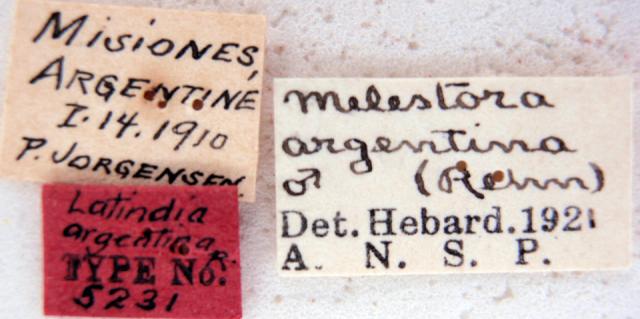 Misiones,
Argentine
I.14.1910
P. Jorgensen.
Latindia
argentina R.
TYPE No.
5231
Melestora
argentina
♂ (Rehn)
Det. Hebard. 1921
A. N. S. P.